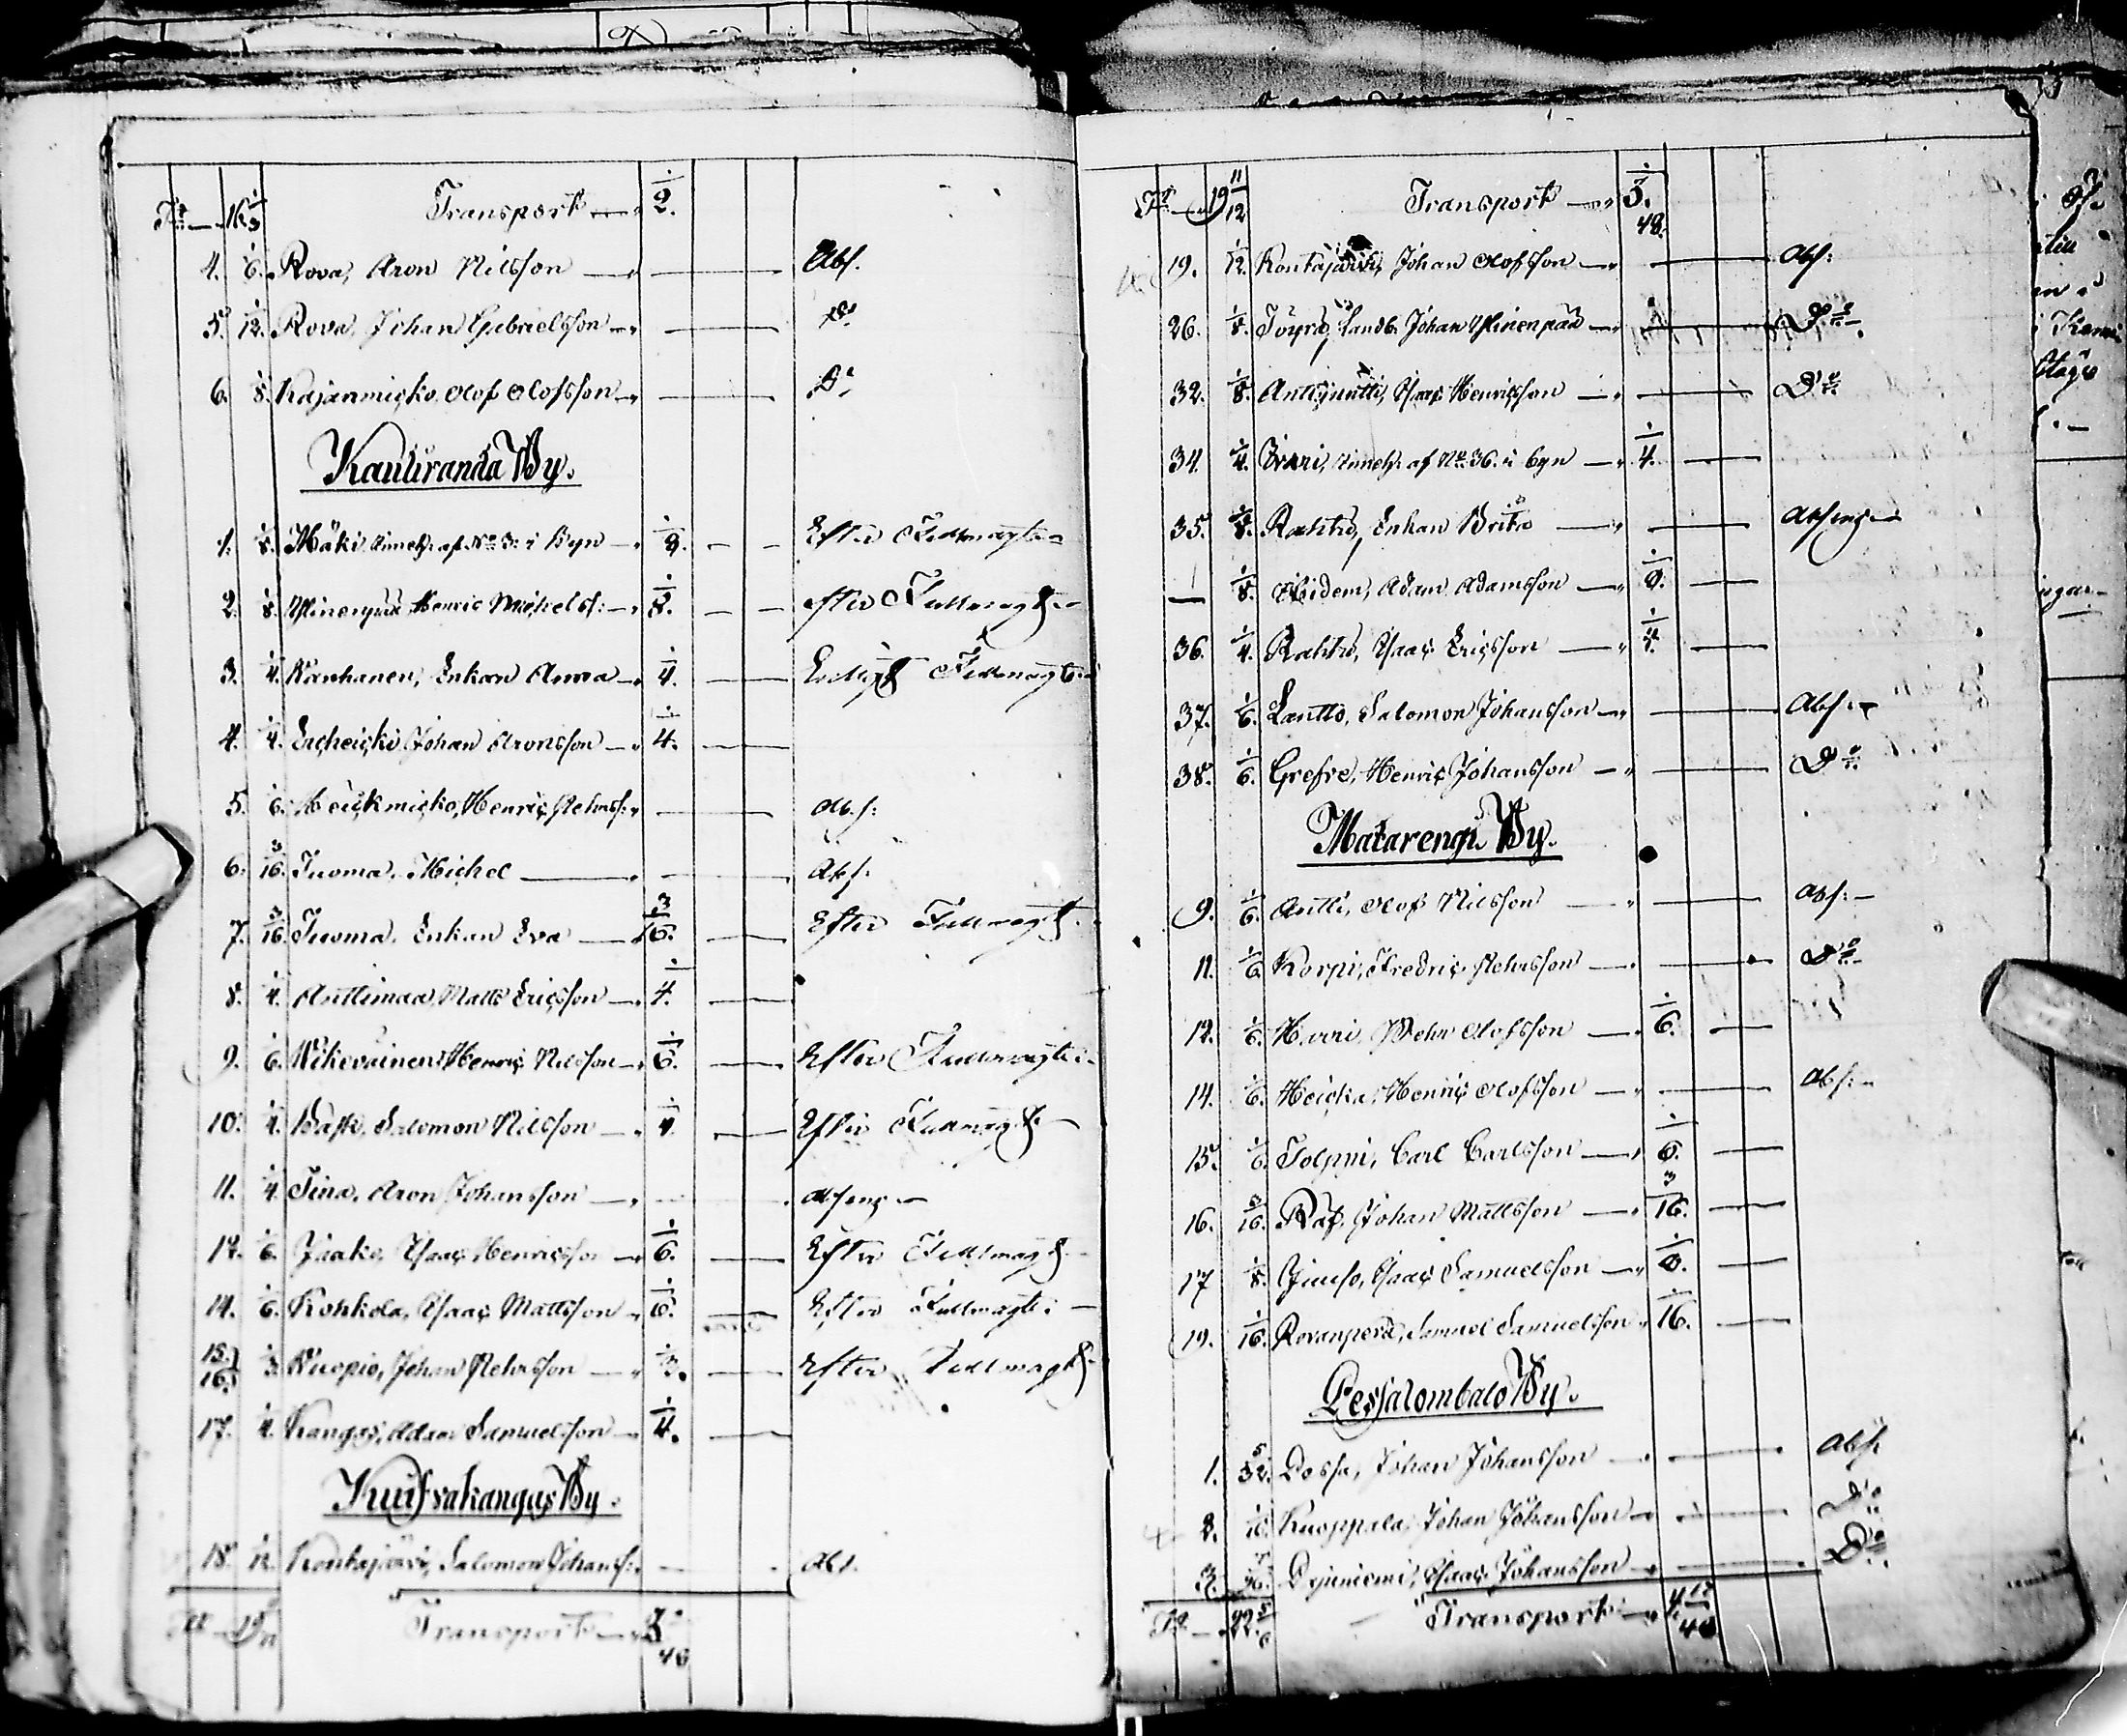 Tr — 16 Transport — 1/2.
4. 1/6. Rova, Aron Nilsson — Abs.
5. 1/12. Rova, Johan Gabrielsson — Do
6. 1/8. Kajanmicko Olof Olofsson — Do
Kauliranda By.
1. 1/8. Mäki inneh. af No 3. i Byn — 1/8. Efter Fullmagt
2. 1/8. Ylinenpää Henric Michelss: — 1/8. efter Fullmagt
3. 1/4. Kanhanen, Enkan Anna — 1/4. Fullmagt
4. 1/4. Johan Aronsson — 1/4.
5. 1/6. Heickmicko, Henric Pehrss: Abs:
6. 3/16. Juoma, Michel — Abs:
7. 3/16. Juoma, Enkan Eva — 3/16. Efter Fullmagt
8. 1/4. Anttimaa, Matts Ericsson — 1/4.
9. 1/6. Wikevainen Henric Nilsson — 1/6. Efter Fullmagt:
10. 1/4. Salomon Nilsson — 1/4 Efter Fullmagt —
11. 1/4. Tina, Aron Johansson — Absens —
12. 1/6. Jaako, Isaac Henricsson — 1/6. Efter Fullmagt
14. 1/6. Kohkola, Isaac Mattsson — 1/6. Efter Fullmagt: —
15. 16. 1/3. Kuopio, Johan Pehrsson — 1/3. Efter Fullmagt
17. 1/4. Kangas, Adam Samuelsson — 1/4.
Kuifvakangas By.
18. 1/12. Kontajärvi, Salomon Johanss: Abs.
Transport — 3 1/48
Tr — 19 11/12 Transport — 3. 1/48.
19. 1/12. Kontajärvi, Johan Olofsson — Abs:
26. 1/8. Töyrä, Landb. Johan Ylinenpää — Do
32. 1/8. Anttijuntti, Isaac Henricsson — Do
34. 1/4. inneh. af No 36. i byn — 1/4.
35. 1/8. Rahtu, Enkan Brita — Absens —
— 1/8. Ibidem, Adam Adamsson — 1/8.
36. 1/4. Rahtu, Isaac Ericsson — 1/4.
37. 1/6. Lantto, Salomon Johansson — Abs: —
38. 1/6. Grefve, Henric Johansson — Do
Matarengi By.
9. 1/6. Antti, Olof Nilsson — Abs: —
11. 1/6. Korpi, Fredric Pehrsson — Do
12. 1/6. Harri, Pehr Olofsson — 1/6.
14. 1/6. Heicka, Henric Olofsson — Abs: —
15. 1/6. Tolpin, Carl Carlsson — 1/6.
16. 3/16. Johan Mattsson — 3/16.
17 1/8. Juuso, Isaac Samuelsson — 1/8.
19. 1/16. Rovanperä, Samuel Samuelsson 1/16.
Pessalombalo By.
1. 5/32. Possa, Johan Johansson — Abs.
2. 1/16. Kuoppala, Johan Johansson — Do
3. Isaac Johansson — Do
Tr — 22 5/6 Transport — 4 17/48